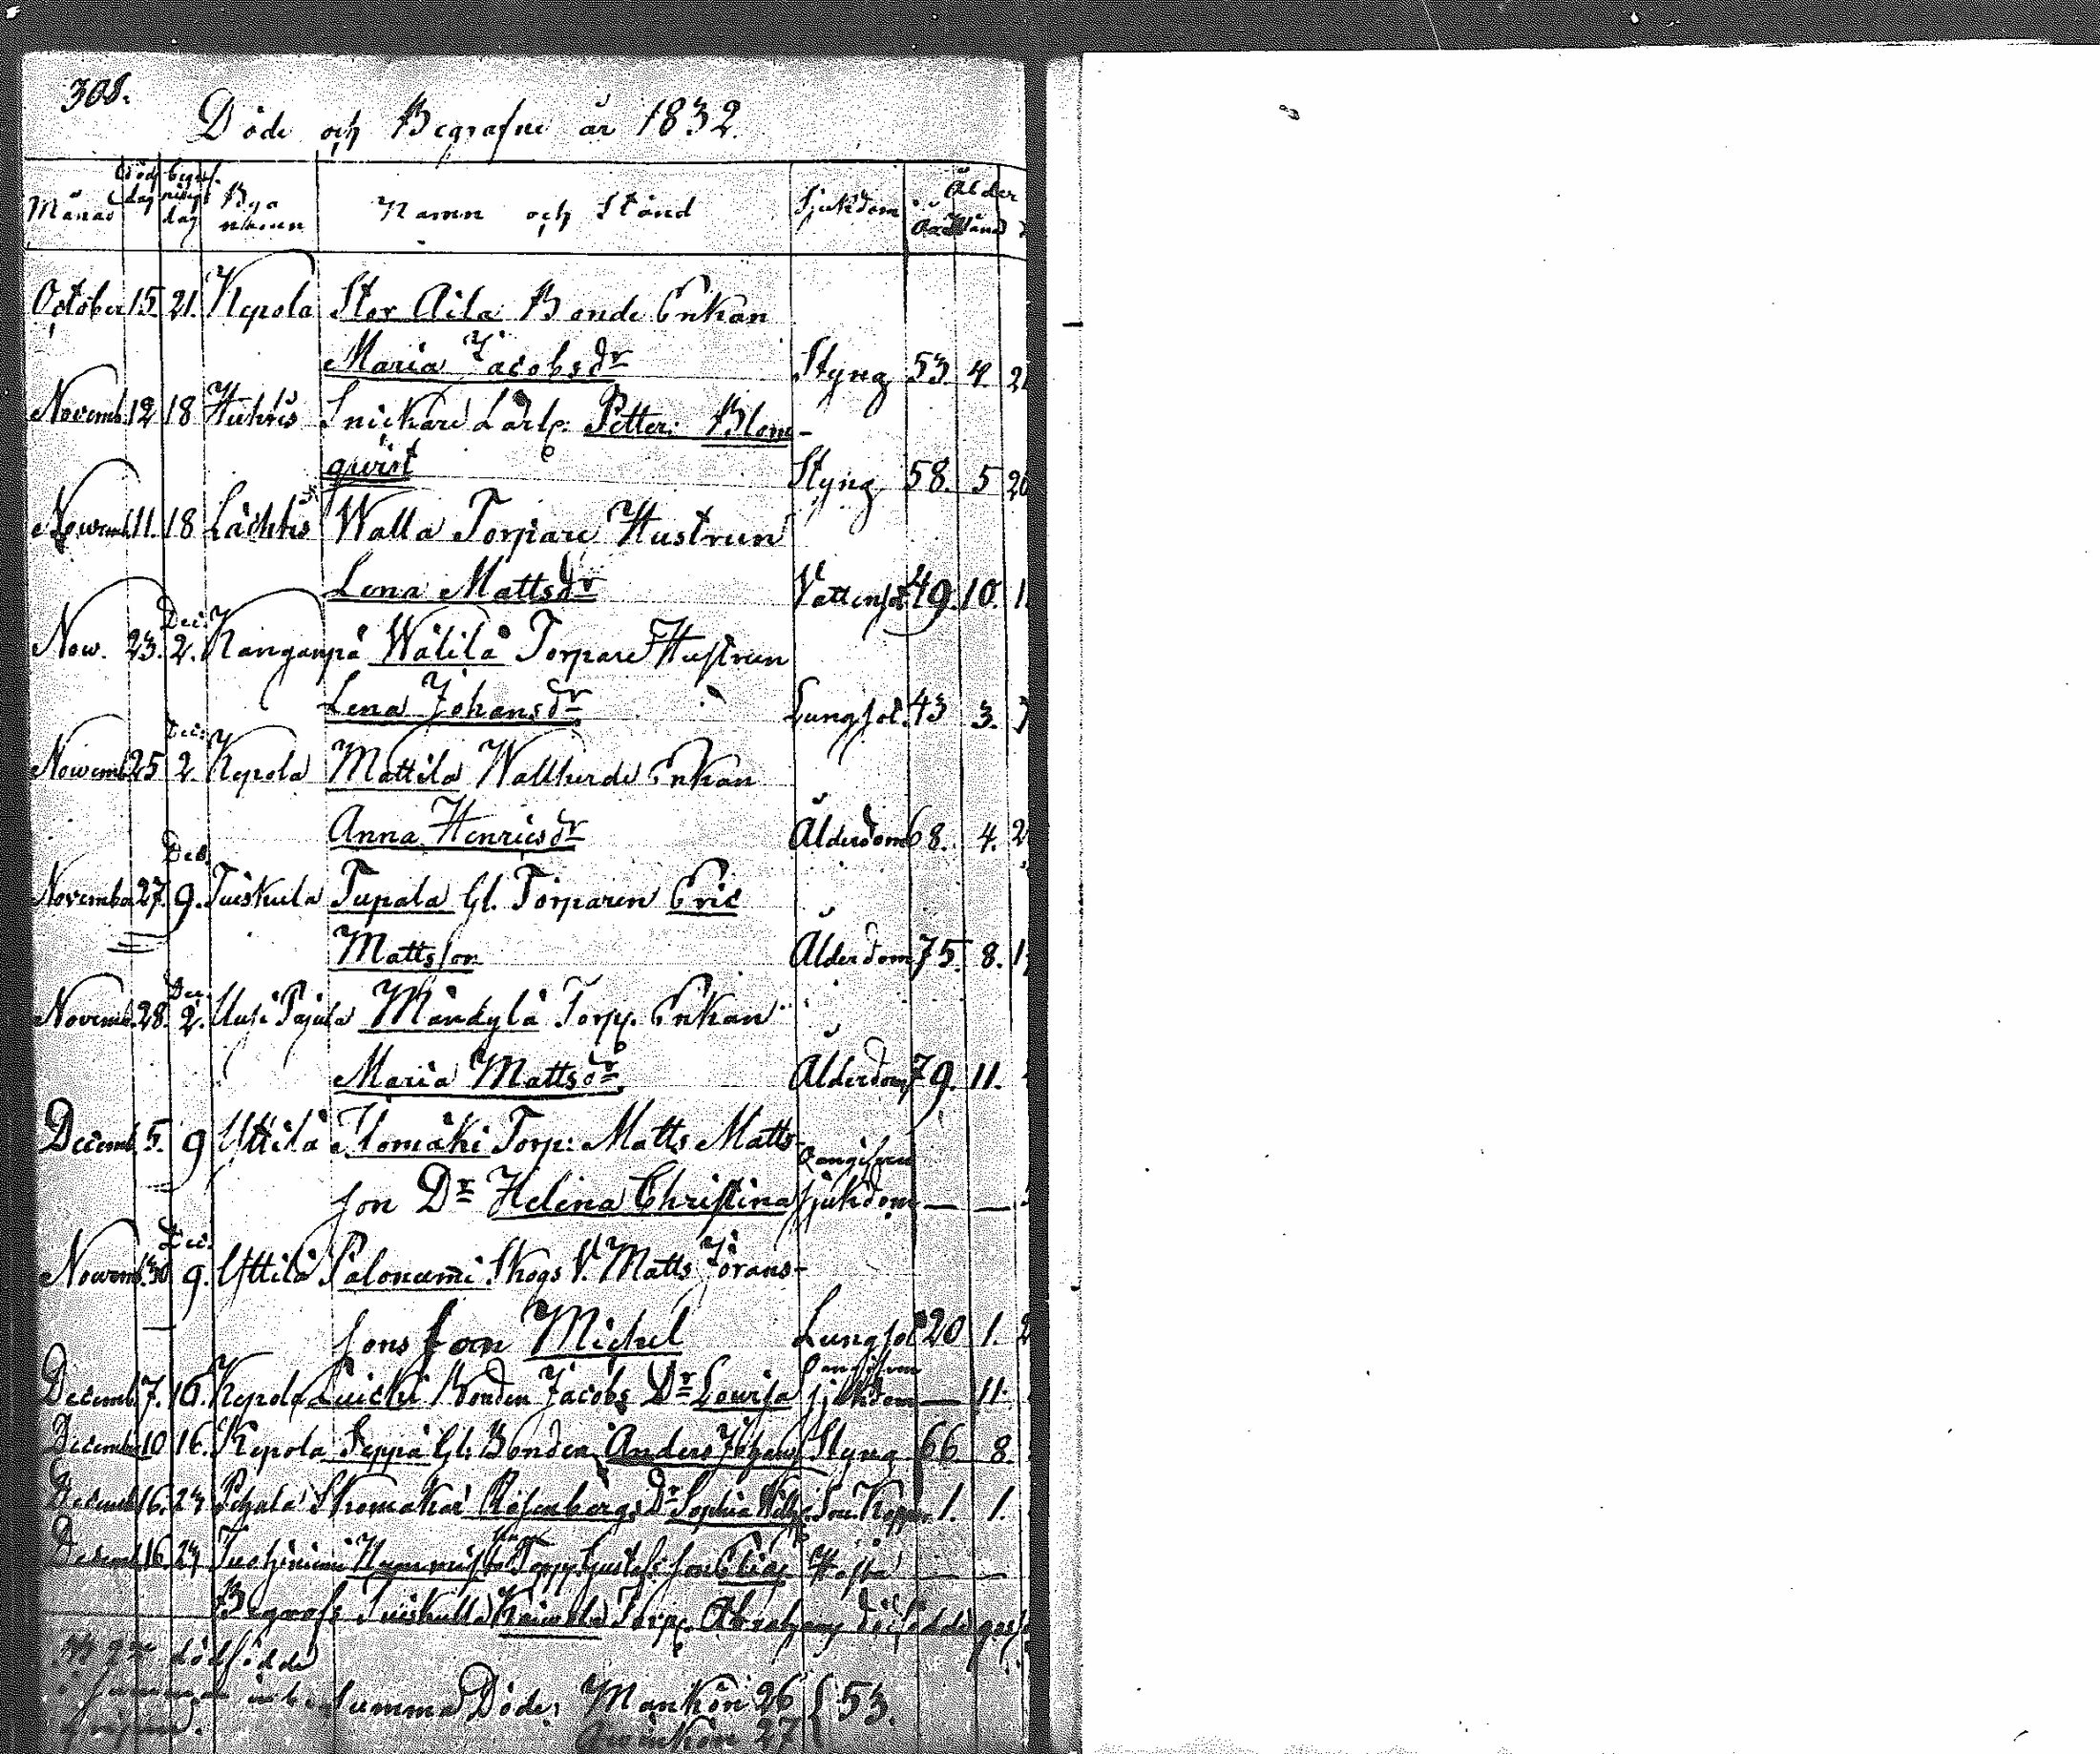 308.
Döde och Begrafne år 1832.
Månad död dag begrafnings dag Bya namn Namn och Stånd Sjukdom Ålder
År Månad
October 15. 21. Kepola Stor Aila Bonde Enkan
Maria Jacobsdr Styng 53. 4. 2
Novemb. 12 18 Huhtis Snickare Lärl: Petter: Blom-
quist Styng 58. 5 20
Novemb. 11. 18 Lächtis Walla Torpare Hustrun
Lena Mattsdr Vattensot 49. 10. 1
Dec:
Nov. 23. 2. Kanganpä Wälilä Torpare Hustrun
Lena Johansdr Lungsot. 43 3.
Dec:
Novemb. 25 2. Kepola Mattila Wallherde Enkan
Anna Henricsdr Ålderdom 68. 4. 2
Dec.
November 27. 9. Tuiskula Tupala Gl. Torparen Eric
Mattsson Ålderdom 75. 8. 1
Dec.
Novemb. 28. 2. Uusi Pajula Mändylä Torp. Enkan
Maria Mattsdr. Ålderdom 79. 11.
Decemb. 5. 9 Uttila Ilomäki Torp: Matts Matts-
Oangifven
son Dr Helena Christina sjukdom — —
Dec:
Novemb. 30 9. Uttila Palonumi Skogs V. Matts Jörans-
sons son Michel Lungsot 20 1. 2
Oangifven
Decemb. 7. 16. Kepola Luicki Bonden Jacobs Dr Lowisa sjukdom — 11.
Decembr 10 16. Kepola Seppä Gl. Bonden Anders Johans Styng 66 8.
Decemb 16. 23 Skomakar Rosenbergs Dr Sophia Kopper 1. 1.
Decemb 16 23 Torp: Gustafs son Elias Hosta — —
Begrofs Tuiskulla Torp. Abrahams dödfödde
dödfödde
Summa Döde: Mankön 26 } 53.
Qwinkön 27